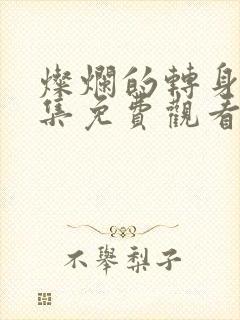 燦爛的轉身
集免費觀看
不舉梨子